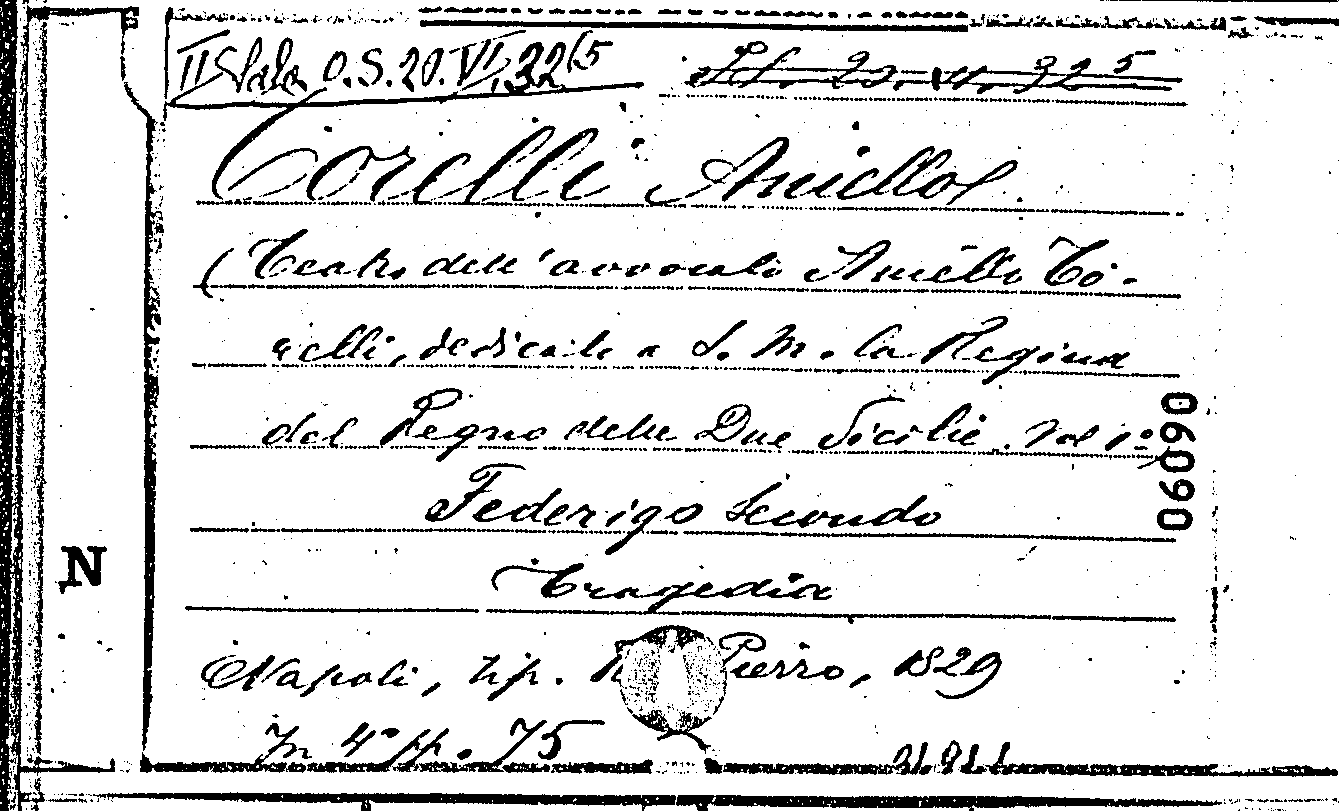 II Sala O.S.20.VI,32(5
22. VI. 32 5
Corelli Aniello
(Teatro dell'avvocato Aniello Co-
relli, dedicato a S. M. la Regina
del Regno delle Due Sicilie. Vol 1º
Federigo Secondo
Tragedia
Napoli, tip. Pierro, 1829
In 4º pp. 75
06090
N